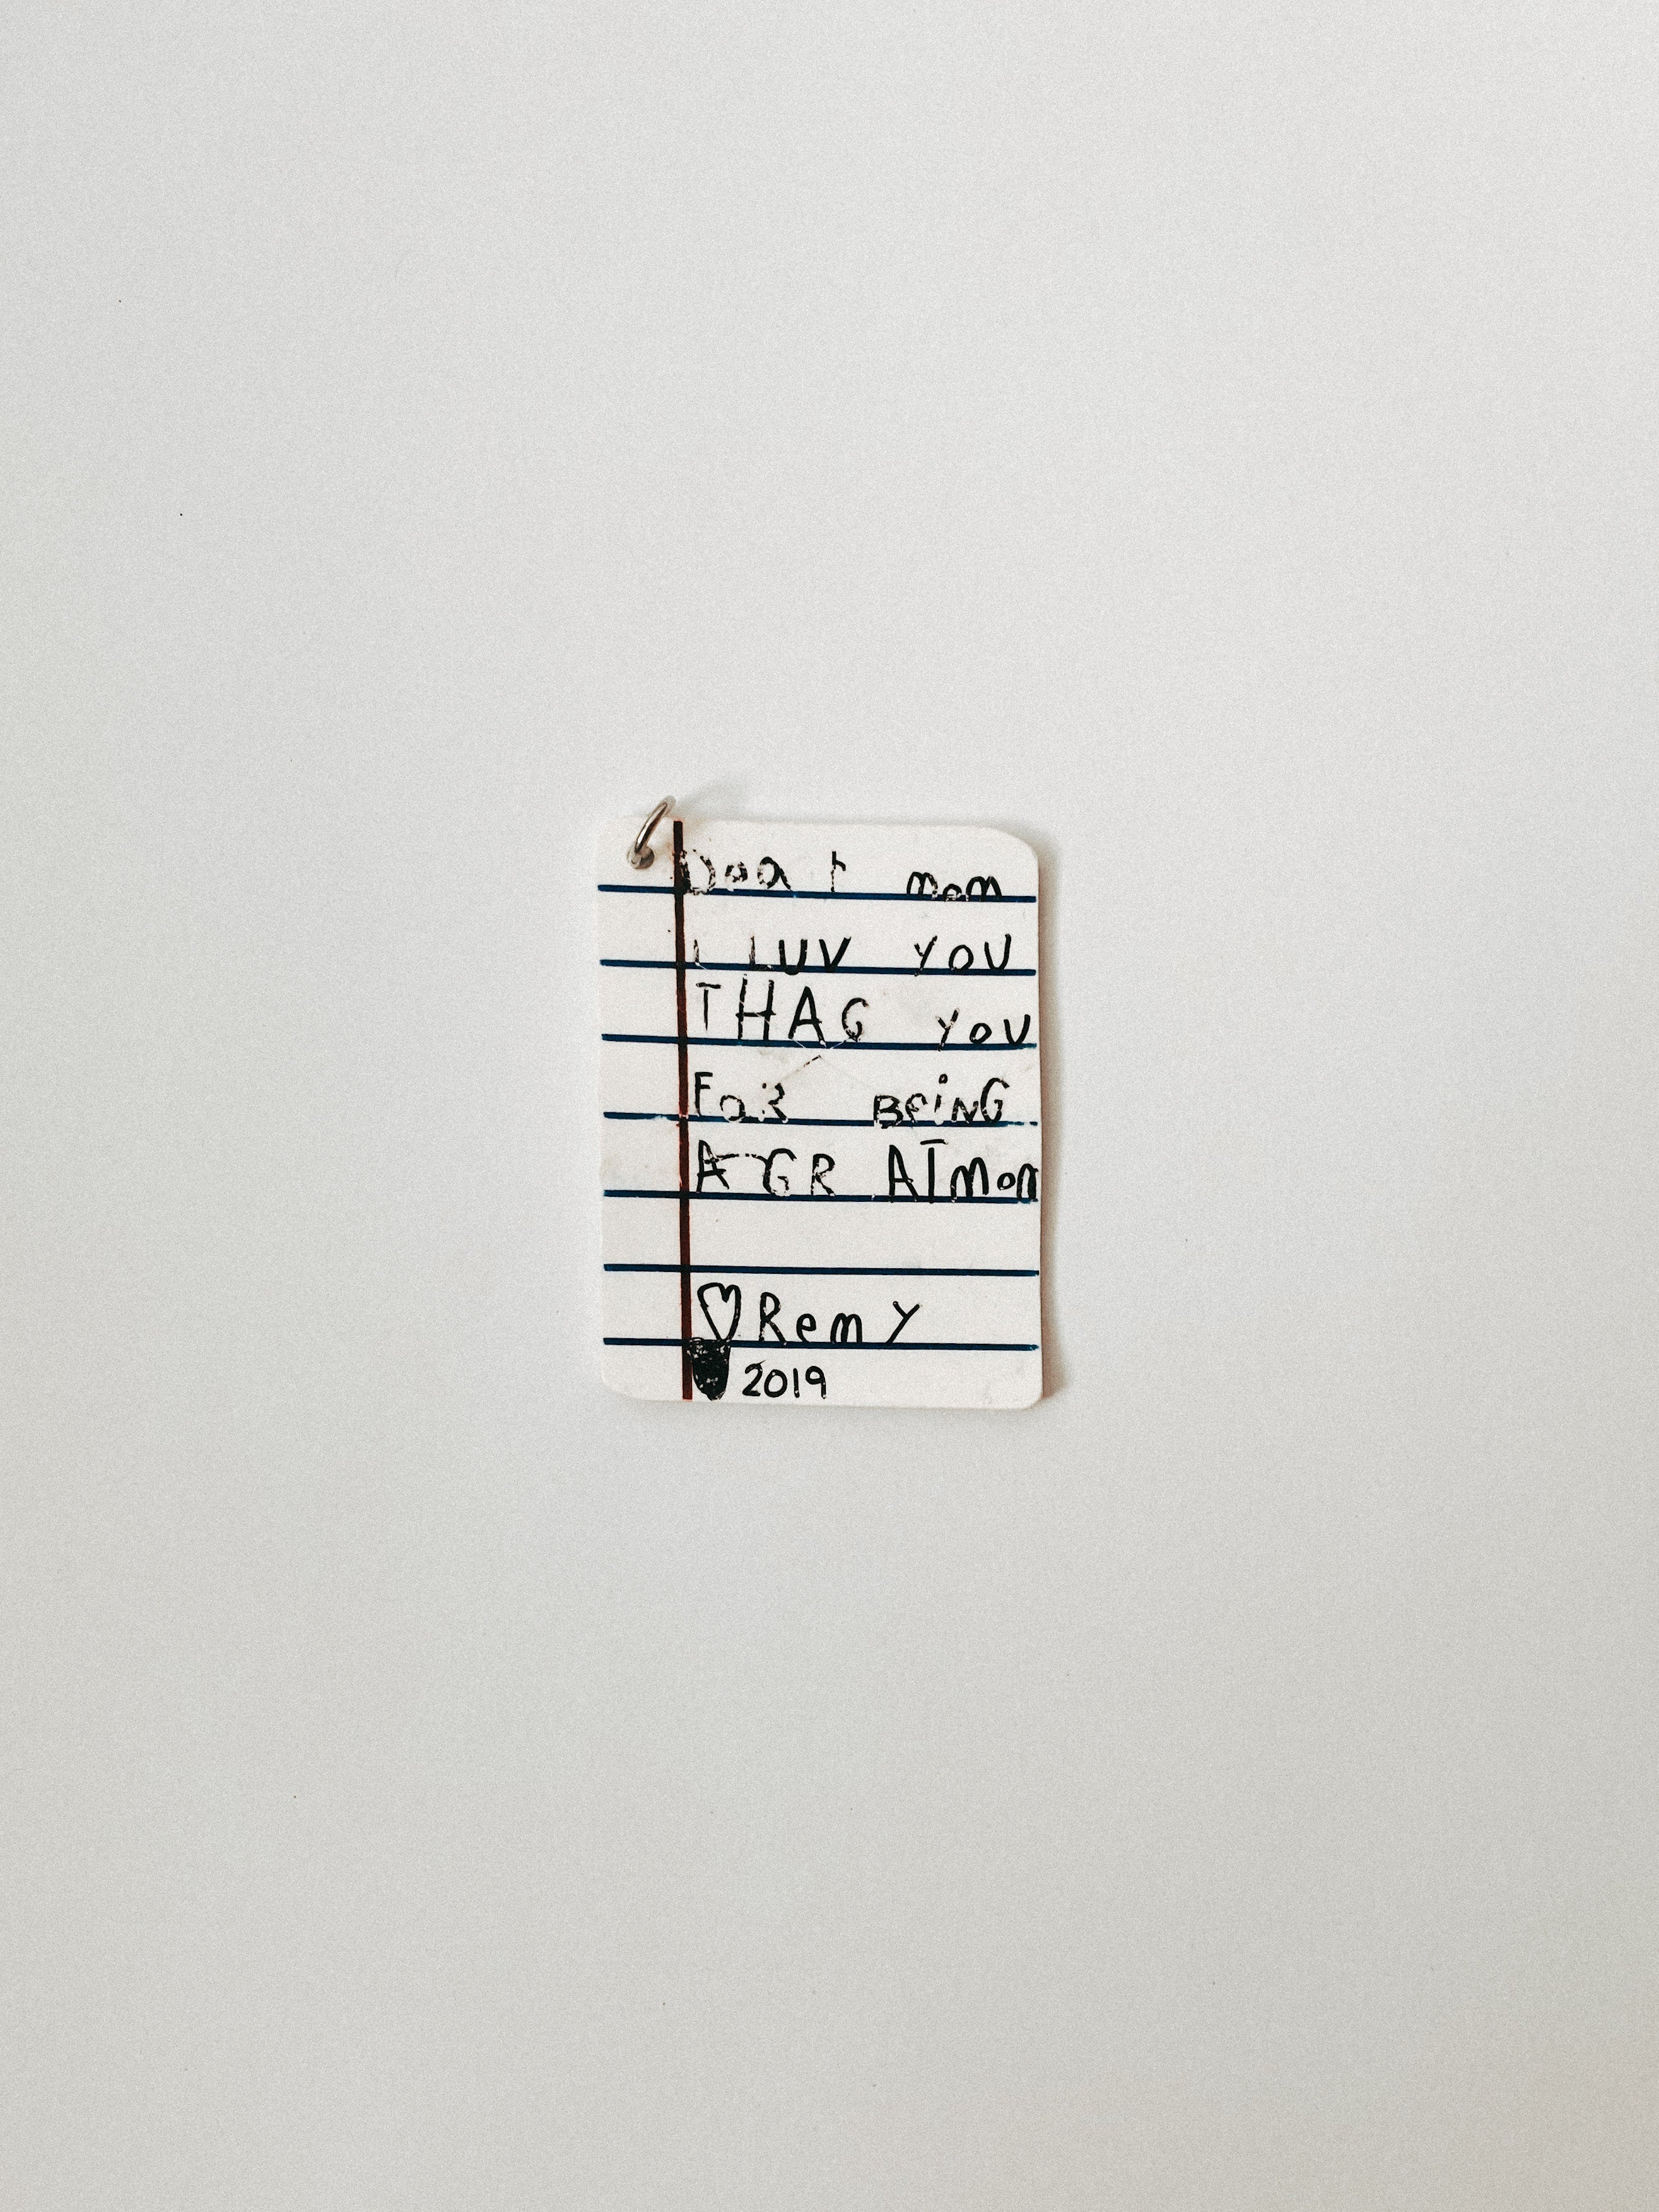 Dear mom
I LUV YOU
THAG YOU
FOR BEING
A GR ATmom
♡ Remy
2019